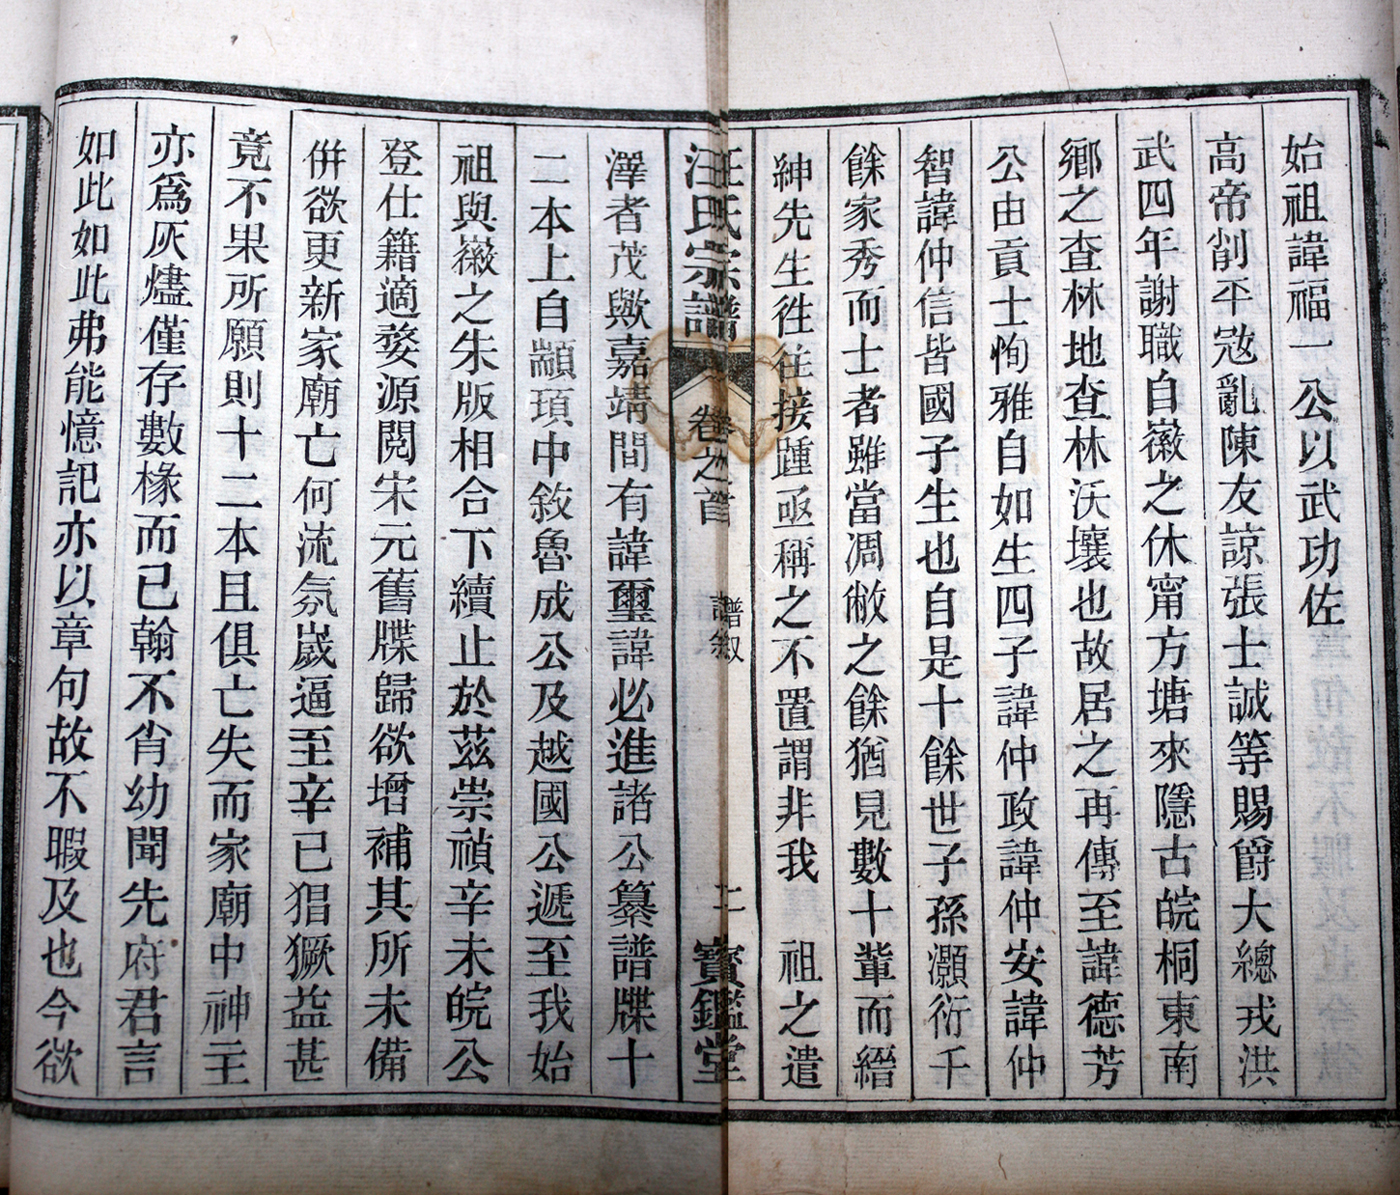 始祖諱福一　公以武功佐
高帝削平宼亂陳友諒張士誠等賜爵大總戎洪
武四年謝職自徽之休甯方塘來隱古皖桐東南
鄉之查林地查林沃壤也故居之再傳至諱德芳
公由貢士恂雅自如生四子諱仲政諱仲安諱仲
智諱仲信皆國子生也自是十餘世子孫灝衍千
餘家秀而士者雖當凋敝之餘猶見數十輩而縉
紳先生徃往接踵亟稱之不置謂非我　祖之遺
汪氏宗譜　卷之首　譜敘　二　寶鑑堂
澤者茂歟嘉靖間有諱璽諱必進諸公纂譜牒十
二本上自顓頊中敘魯成公及越國公遞至我始
祖與徽之朱版相合下續止於茲崇禎辛未皖公
登仕籍適婺源閱宋元舊牒歸欲增補其所未備
併欲更新家廟亡何流氛嵗逼至辛巳猖獗益甚
竟不果所願則十二本且俱亡失而家廟中神主
亦爲灰燼僅存數椽而已翰不肖幼聞先府君言
如此如此弗能憶記亦以章句故不暇及也今欲